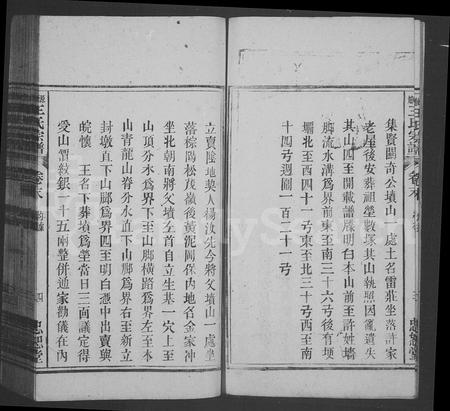 集賢關奇公墳山一處土名雷莊坐落許家
老屋後安葬祖塋數塚其山執照因亂遺失
其山四至開載譜牒明白本山前至許姓墻
脚流水溝爲界前東至南三十六弓後有埂
壩北至西四十一弓東至北三十弓西至南
十四弓週圍一百二十一弓
王氏宗譜
卷末
忠恕堂
立賣陰地契人楊汝先今將父墳山一處坐
落棕陽松茂嶺後黄泥岡保内地名金家冲
坐北朝南將父墳左首自立生基一穴上至
山頂分水爲界下至山脚橫路爲界左至本
山青龍山脊分水直下山脚爲界右至新立
封墩直下山脚爲界四至明白憑中出賣與
皖懷 王名下葬墳爲塋當日三面議定得
受山價紋銀一十五兩整併通家勸儀在内
王氏宗譜
卷末
四
忠恕堂